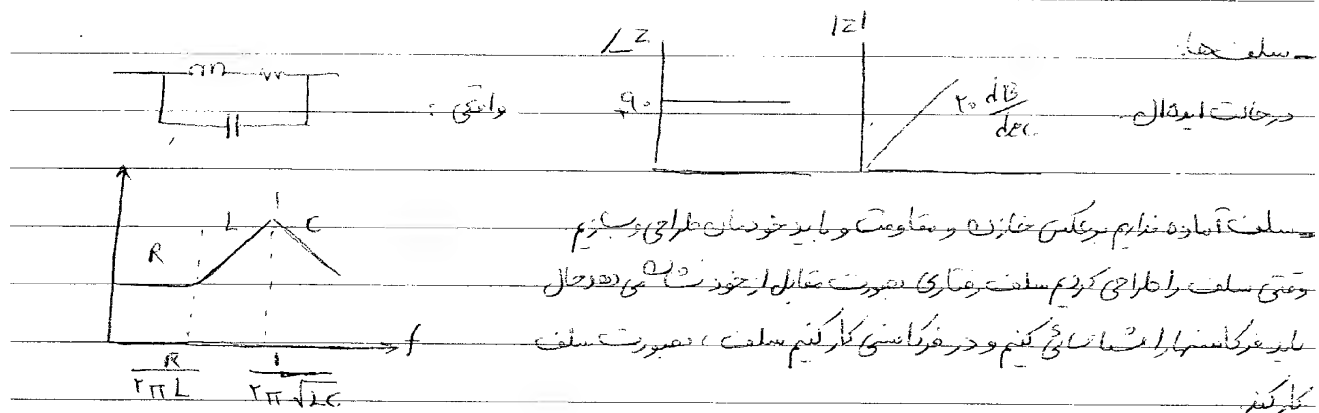 - سلف ها:
در حالت ایده ال
|Z|
۲۰ dB/dec
∠Z
۹۰
واقعی :
R
L
C
f
R/۲πL
۱/۲π√LC
- سلف آماده نداریم برعکس خازن و مقاومت و باید خودمان طراحی و بسازیم
وقتی سلف را طراحی کردیم سلف رفتاری بصورت مقابل از خود نشان می دهد حال
باید فرکانسها را شناسائی کنیم و در فرکانسی کار کنیم سلف ، بصورت سلف
کار کند.